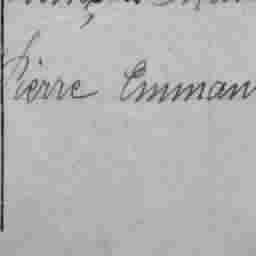 Pierre Emman